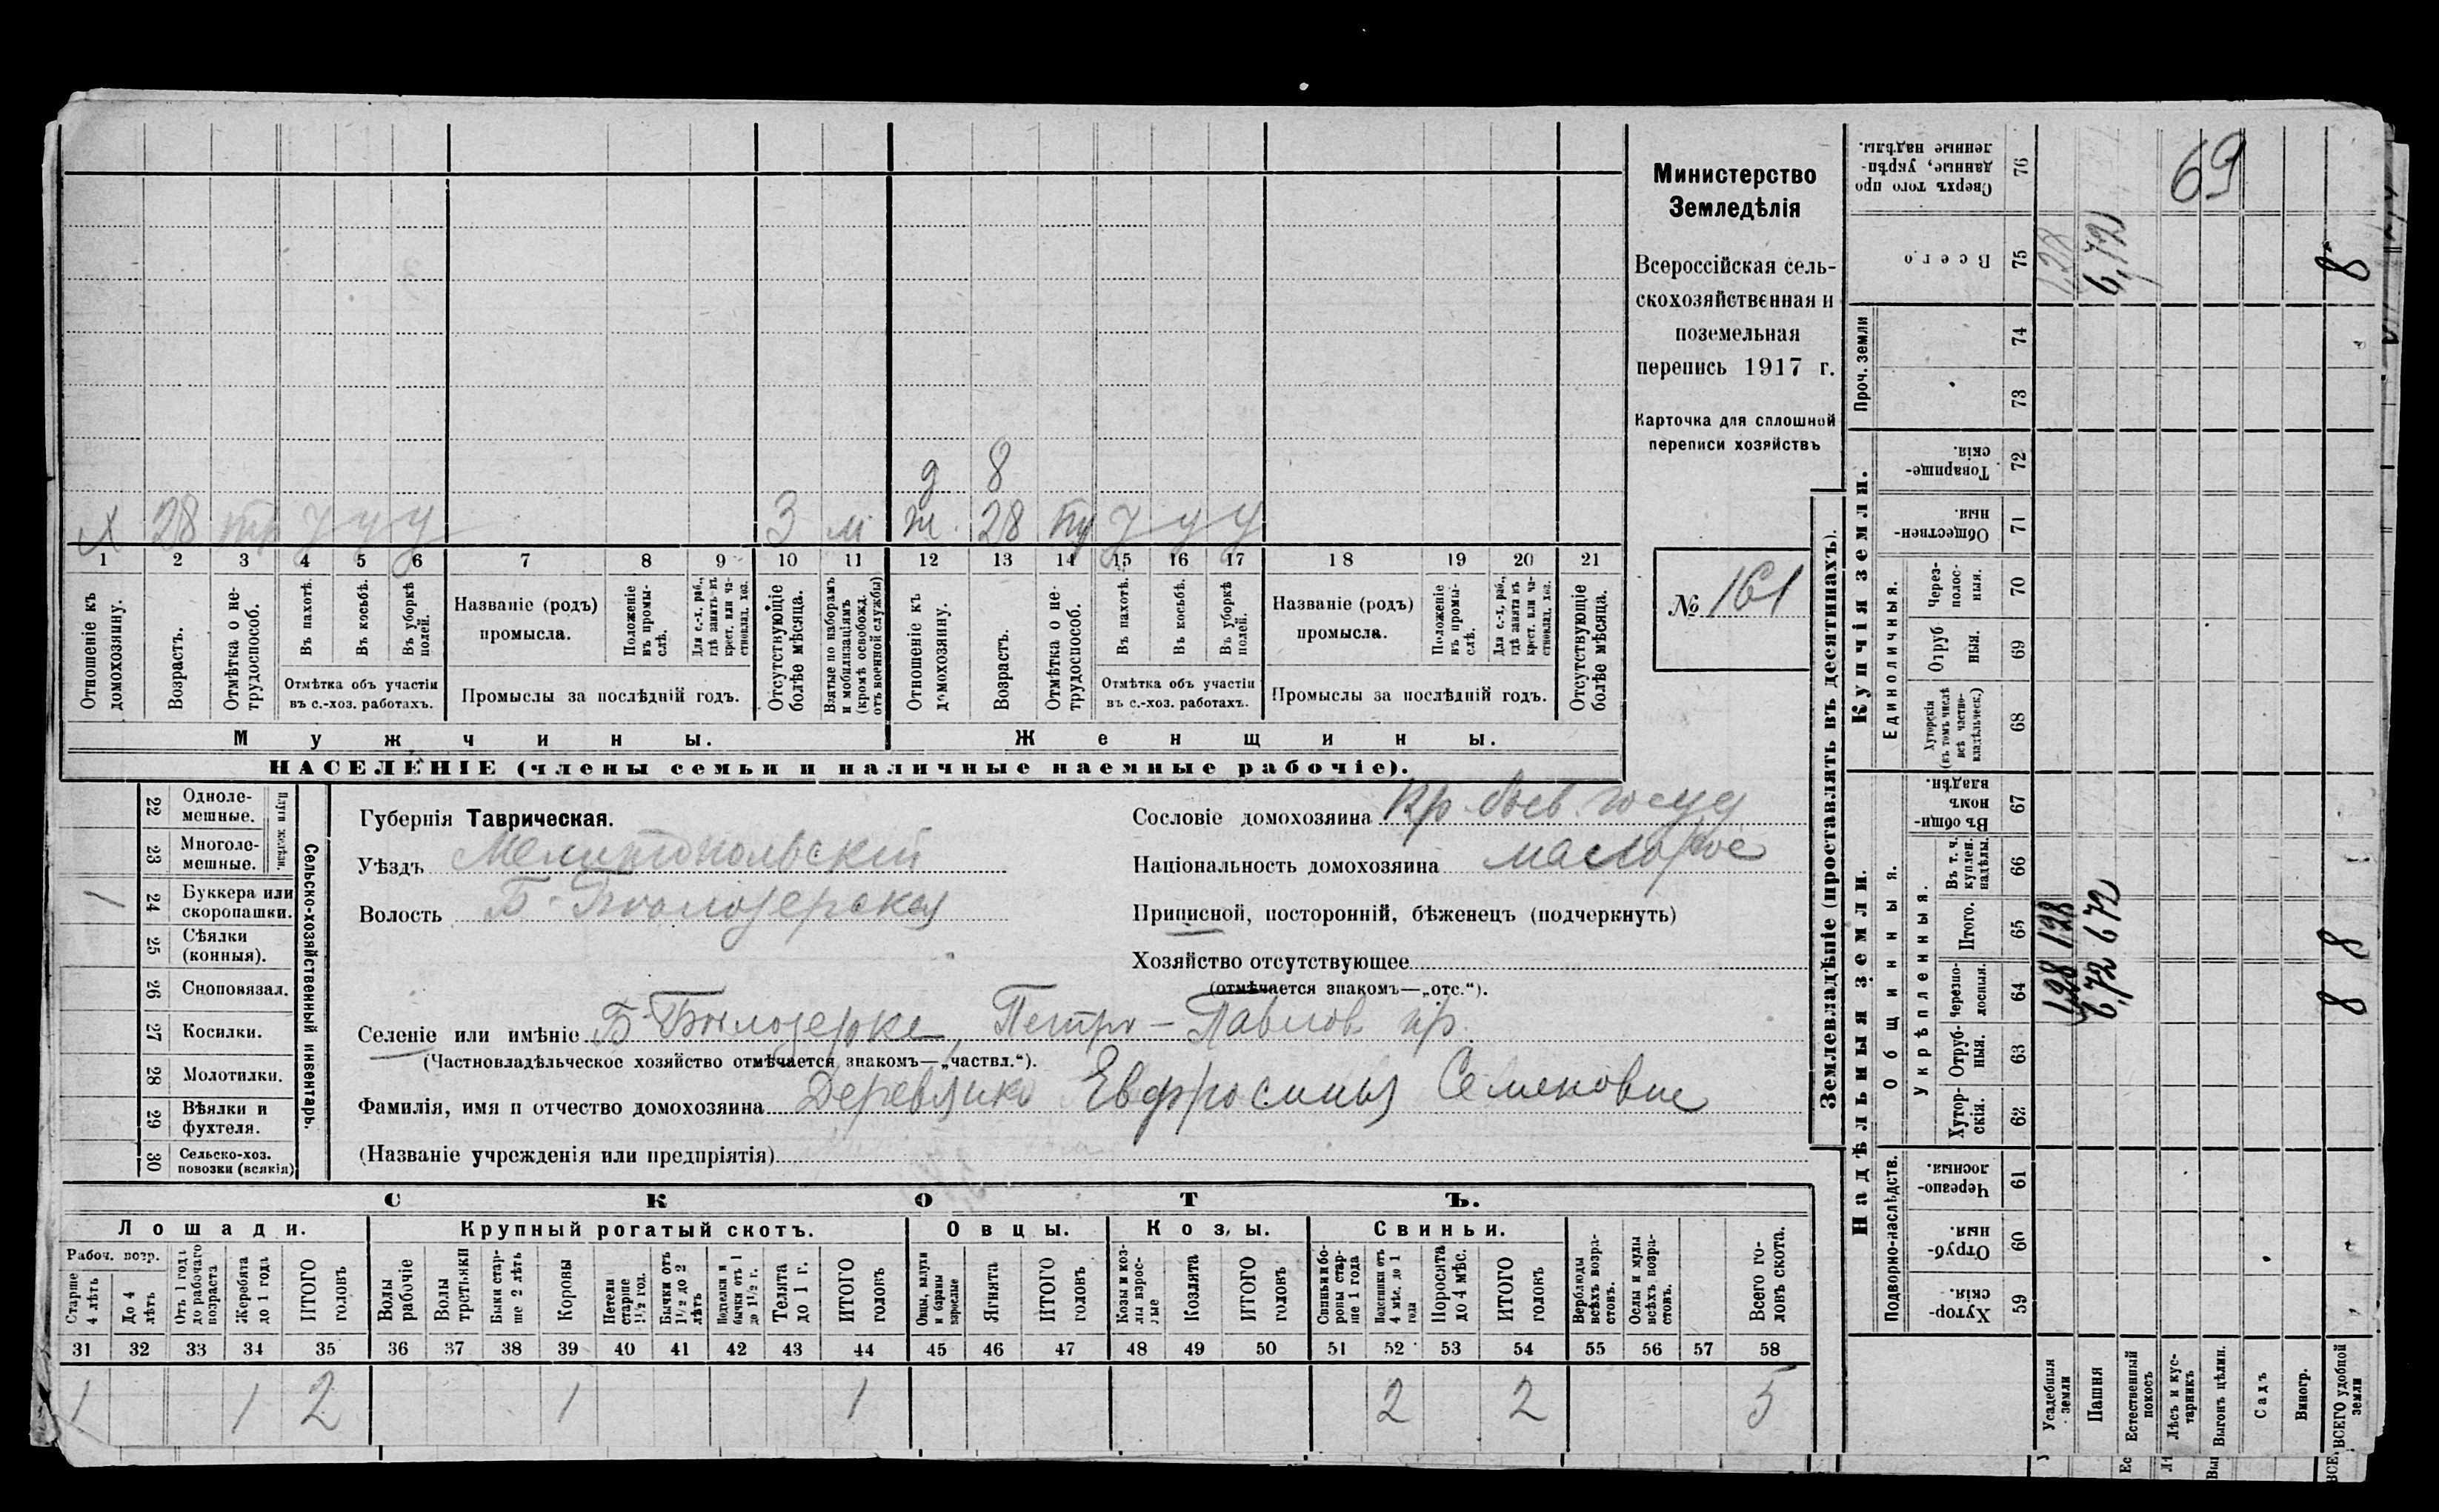 Министерство
Земледѣлія
Всероссійская сель-
скохозяйственная и
поземельная
перепись 1917 г.
Карточка для сплошной
переписи хозяйствъ
№ 161
69
д 8
х 28 3 м ж. 28
1 2 3 4 5 6 7 8 9 10 11 12 13 14 15 16 17 18 19 20 21
Отношеніе къ домохозяину.
Возрастъ.
Отмѣтка о не-трудоспособ.
Въ пахотѣ.
Въ косьбѣ.
Въ уборкѣ полей.
Отмѣтка объ участіи
въ с.-хоз. работахъ.
Названіе (родъ)
промысла.
Положеніе въ промы-слѣ.
Для с.-х. раб., гдѣ занятъ въ крест. или ча-стновлад. хоз.
Промыслы за послѣдній годъ.
Отсутствующіе болѣе мѣсяца.
Взятые по наборамъ и мобилизаціямъ (кромѣ освобожд. отъ военной службы)
Отношеніе къ домохозяину.
Возрастъ.
Отмѣтка о не-трудоспособ.
Въ пахотѣ.
Въ косьбѣ.
Въ уборкѣ полей.
Отмѣтка объ участіи
въ с.-хоз. работахъ.
Названіе (родъ)
промысла.
Положеніе въ промы-слѣ.
Для с.-х. раб., гдѣ занята въ крест. или ча-стновлад. хоз.
Промыслы за послѣдній годъ.
Отсутствующіе болѣе мѣсяца.
Мужчины. Женщины.
НАСЕЛЕНІЕ (члены семьи и наличные наемные рабочіе).
22 Одноле-мешные.
23 Многоле-мешные.
Плуги желѣзн.
24 Буккера или скоропашки. 1
25 Сѣялки (конныя).
26 Сноповязал.
27 Косилки.
28 Молотилки.
29 Вѣялки и фухтеля.
30 Сельско-хоз. повозки (всякія)
Сельско-хозяйственный инвентарь.
Губернія Таврическая.
Уѣздъ Мелитопольскій
Волость Б-Бѣлозерская
Сословіе домохозяина Кр. быв. госуд
Національность домохозяина малорос
Приписной, посторонній, бѣженецъ (подчеркнуть)
Хозяйство отсутствующее
(отмѣчается знакомъ—„отс.“).
Селеніе или имѣніе Б-Бѣлозерке, Петро-Павлов. пр.
(Частновладѣльческое хозяйство отмѣчается знакомъ—„частвл.“).
Фамилія, имя и отчество домохозяина Деревянко Евфросинья Семеновне
(Названіе учрежденія или предпріятія)
СКОТЪ.
Лошади. Крупный рогатый скотъ. Овцы. Козы. Свиньи.
Рабоч. возр.
Старше 4 лѣтъ
До 4 лѣтъ
Отъ 1 года до рабочаго возраста
Жеребята до 1 года
ИТОГО головъ
Волы рабочіе
Волы третьяки
Быки стар-ше 2 лѣтъ
Коровы
Нетели старше 1½ год.
Бычки отъ 1½ до 2 лѣтъ
Подтелки и бычки отъ 1 до 1½ г.
Телята до 1 г.
ИТОГО головъ
Овцы, валухи и бараны взрослые
Ягнята
ИТОГО головъ
Козы и коз-лы взрос-лые
Козлята
ИТОГО головъ
Свиньи и бо-ровы стар-ше 1 года
Подсвинки отъ 4 мѣс. до 1 года
Поросята до 4 мѣс.
ИТОГО головъ
Верблюды всѣхъ возра-стовъ.
Ослы и мулы всѣхъ возра-стовъ.
Всего го-ловъ скота.
31 32 33 34 35 36 37 38 39 40 41 42 43 44 45 46 47 48 49 50 51 52 53 54 55 56 57 58
1 1 2 1 1 2 2 5
Землевладѣніе (проставлять въ десятинахъ).
Надѣльныя земли.
Купчія земли.
Проч. земли
Подворно-наслѣдств.
Общинныя.
Укрѣпленныя.
Единоличныя.
Хутор-скія. 59
Отруб-ныя. 60
Черезпо-лосныя. 61
Хутор-скія. 62
Отруб-ныя. 63
Черезпо-лосныя. 64
Итого. 65
Въ т. ч. куплен. надѣлы. 66
Въ общи-номъ владѣн. 67
Хуторскія (въ томъ числѣ всѣ частно-владѣльческ.) 68
Отруб-ныя. 69
Через-полос-ныя. 70
Обществен-ныя. 71
Товарище-скія. 72
73
74
Всего. 75
Сверхъ того про-данные, укрѣп-ленные надѣлы. 76
Усадебныя земли 1,28 128 1,28
Пашня 6,72 672 6,72
Естественный покосъ
Лѣсъ и кус-тарникъ
Выгонъ цѣлин.
Садъ
Виногр.
ВСЕГО удобной земли 8 8 8